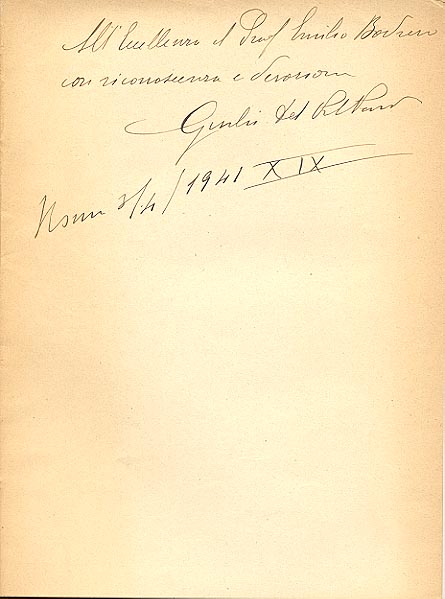 All'Eccellenza il Prof Emilio Bodrero
con riconoscenza e devozione
Giulio del
Roma 3/4/1941 XIX